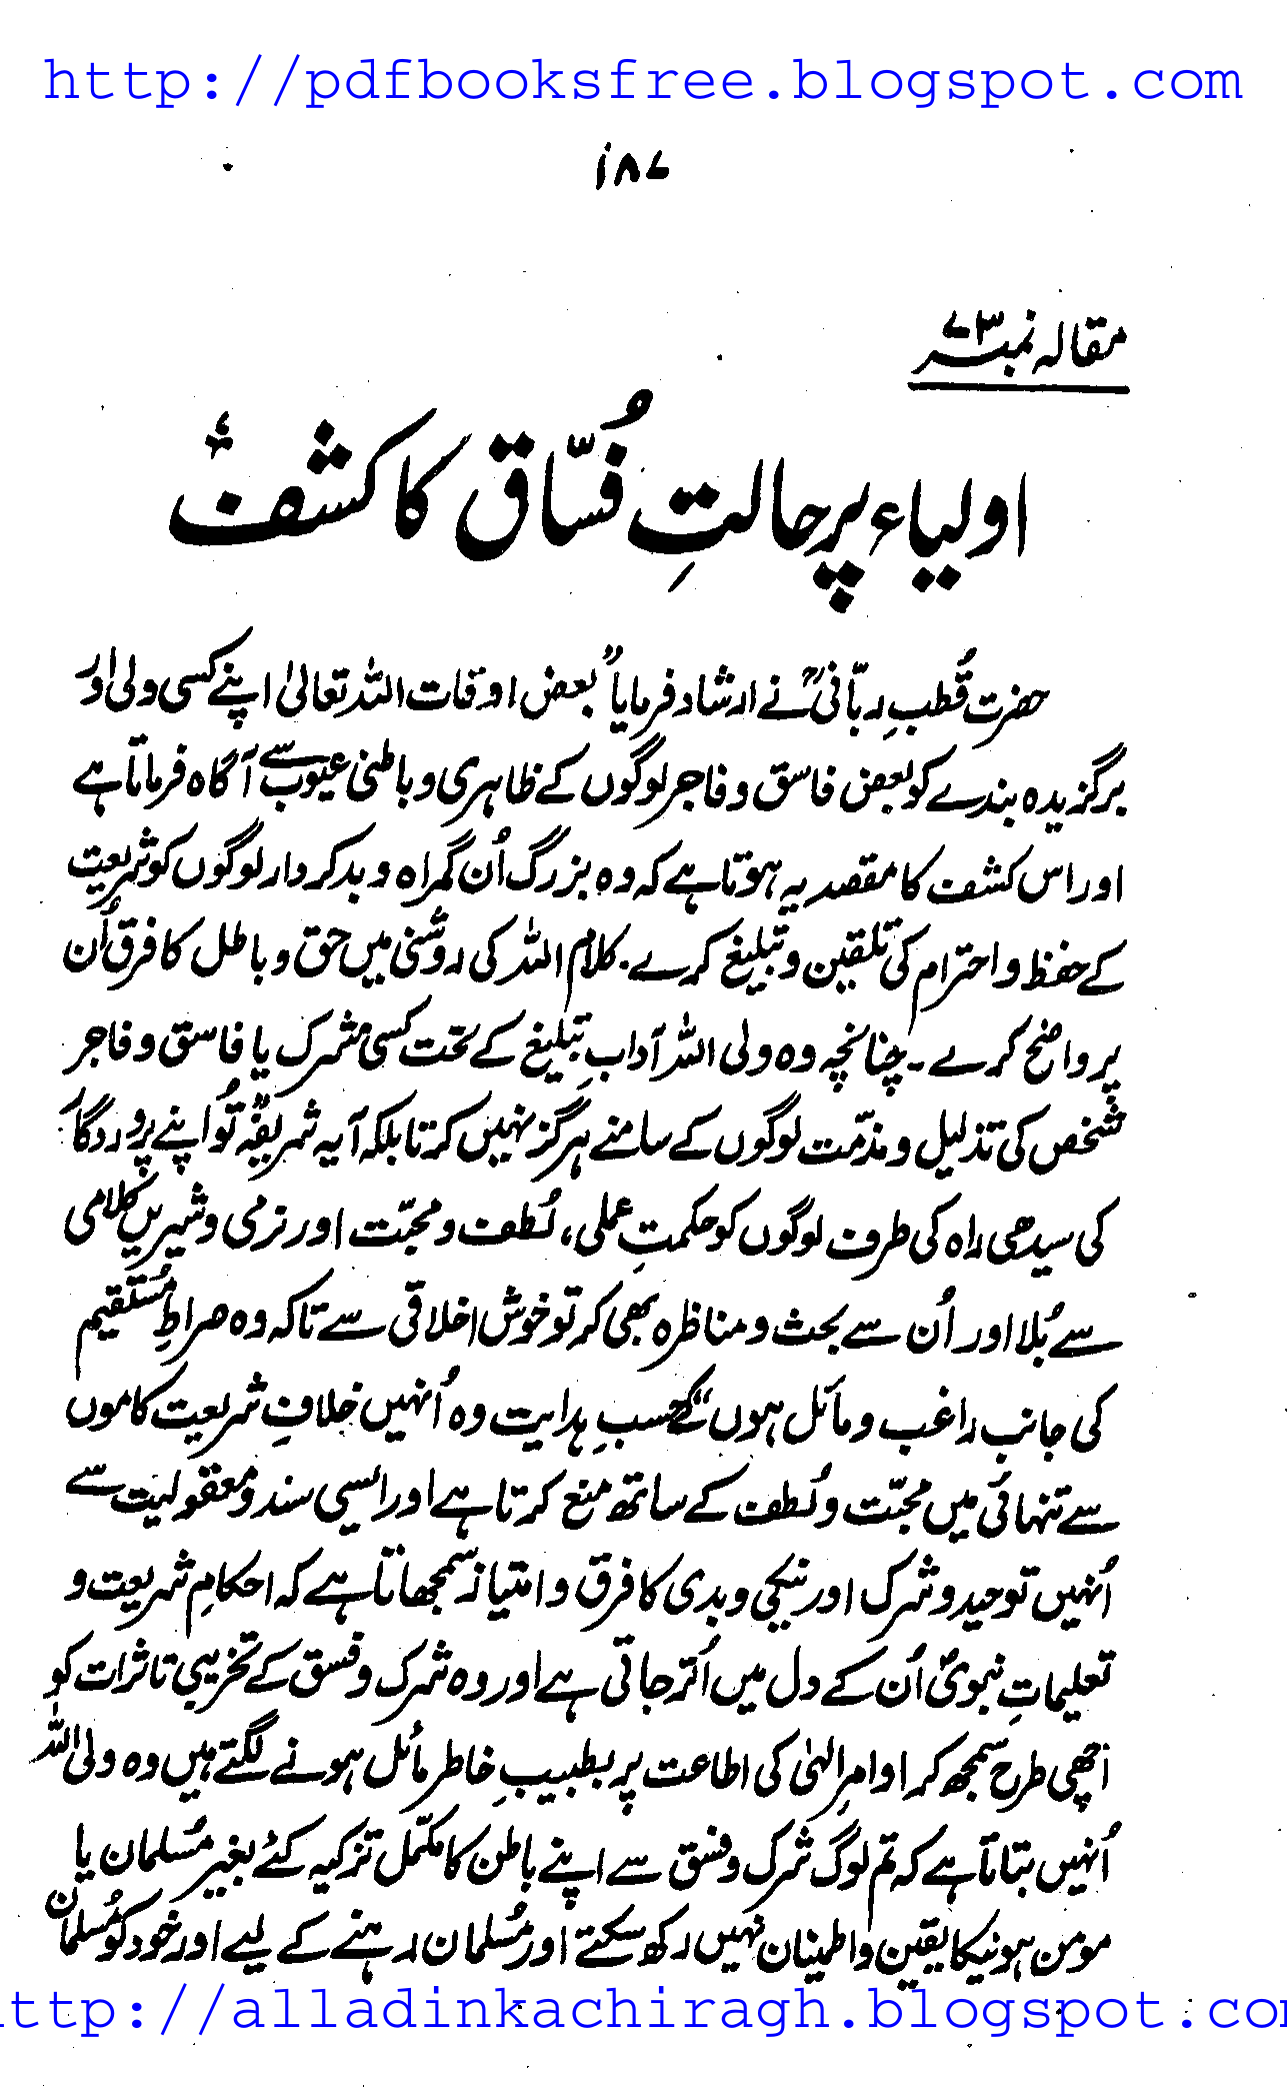 http://pdfbooksfree.blogspot.com
۱۸۷
مقالہ نمبر ۷۳
اولیاء پر حالتِ فُسّاق کا کشف
حضرت قُطبِ ربّانیؒ نے ارشاد فرمایا "بعض اوقات اللہ تعالیٰ اپنے کسی ولی اور
برگزیدہ بندے کو بعض فاسق و فاجر لوگوں کے ظاہری و باطنی عیوب سے آگاہ فرماتا ہے
اور اس کشف کا مقصد یہ ہوتا ہے کہ وہ بزرگ اُن گمراہ و بدکردار لوگوں کو شریعت
کے حفظ و احترام کی تلقین و تبلیغ کرے۔ کلام اللہ کی روشنی میں حق و باطل کا فرق اُن
پر واضح کرے۔ چنانچہ وہ ولی اللہ آدابِ تبلیغ کے تحت کسی مشرک یا فاسق و فاجر
شخص کی تذلیل و مذمّت لوگوں کے سامنے ہرگز نہیں کرتا بلکہ آیہ شریفہ "تُو اپنے پروردگار
کی سیدھی راہ کی طرف لوگوں کو حکمتِ عملی، لُطف و محبّت اور نرمی و شیریں کلامی
سے بُلا اور اُن سے بحث و مناظرہ بھی کر تو خوش اخلاقی سے تاکہ وہ صراطِ مُستقیم
کی جانب راغب و مائل ہوں" کے حسبِ ہدایت وہ اُنہیں خلافِ شریعت کاموں
سے تنہائی میں محبّت و لُطف کے ساتھ منع کرتا ہے اور ایسی سند و معقولیت سے
اُنہیں توحید و شرک اور نیکی و بدی کا فرق و امتیاز سمجھاتا ہے کہ احکامِ شریعت و
تعلیماتِ نبویؐ اُن کے دل میں اُتر جاتی ہے اور وہ شرک و فسق کے تخریبی تاثرات کو
اچھی طرح سمجھ کر اوامرِ الٰہی کی اطاعت پر بطیبِ خاطر مائل ہونے لگتے ہیں وہ ولی اللہ
اُنہیں بتاتا ہے کہ تم لوگ شرک و فسق سے اپنے باطن کا مکمّل تزکیہ کئے بغیر مُسلمان یا
مومن ہونیکا یقین و اطمینان نہیں رکھ سکتے اور مُسلمان رہنے کے لیے اور خود کو مُسلمان
ttp://alladinkachiragh.blogspot.com